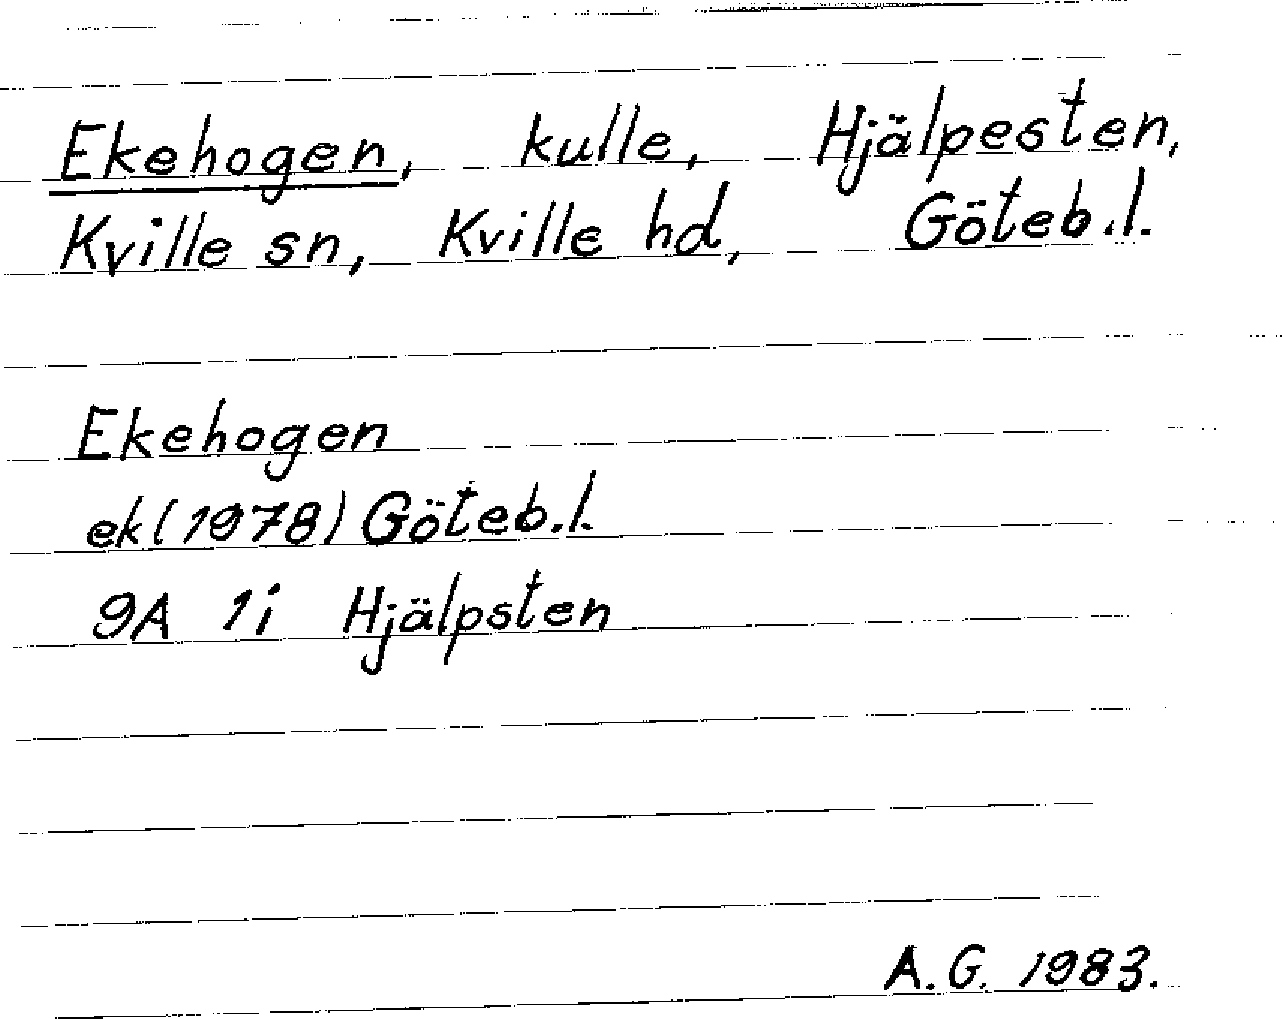 Ekehogen, kulle, Hjälpesten,
Kville sn, Kville hd, Göteb.l.
Ekehogen
ek (1978) Göteb.l.
9A 1i Hjälpsten
A.G. 1983.